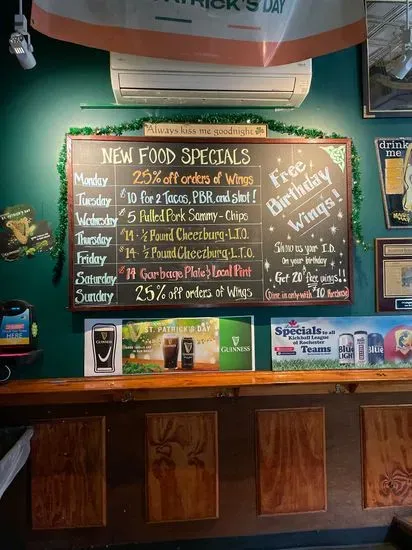 PATRICK'S DAY
Always kiss me goodnight
NEW FOOD SPECIALS
Monday 25% off orders of Wings
Tuesday $10 for 2 Tacos, PBR, and shot!
Wednesday $5 Pulled Pork Sammy - Chips
Thursday $14 - ½ Pound Cheezburg - L.T.O.
Friday $14 - ½ Pound Cheezburg - L.T.O.
Saturday $14 Garbage Plate & Local Pint
Sunday 25% off orders of Wings
Free
Birthday
Wings!
Show us your I.D.
on your birthday
Get 20 free wings!!
Dine in only with $10 Purchase
drink
me
HERE
GUINNESS
ST. PATRICK'S DAY
GUINNESS
Specials to all
Kickball League
of Rochester
Teams
BLUE